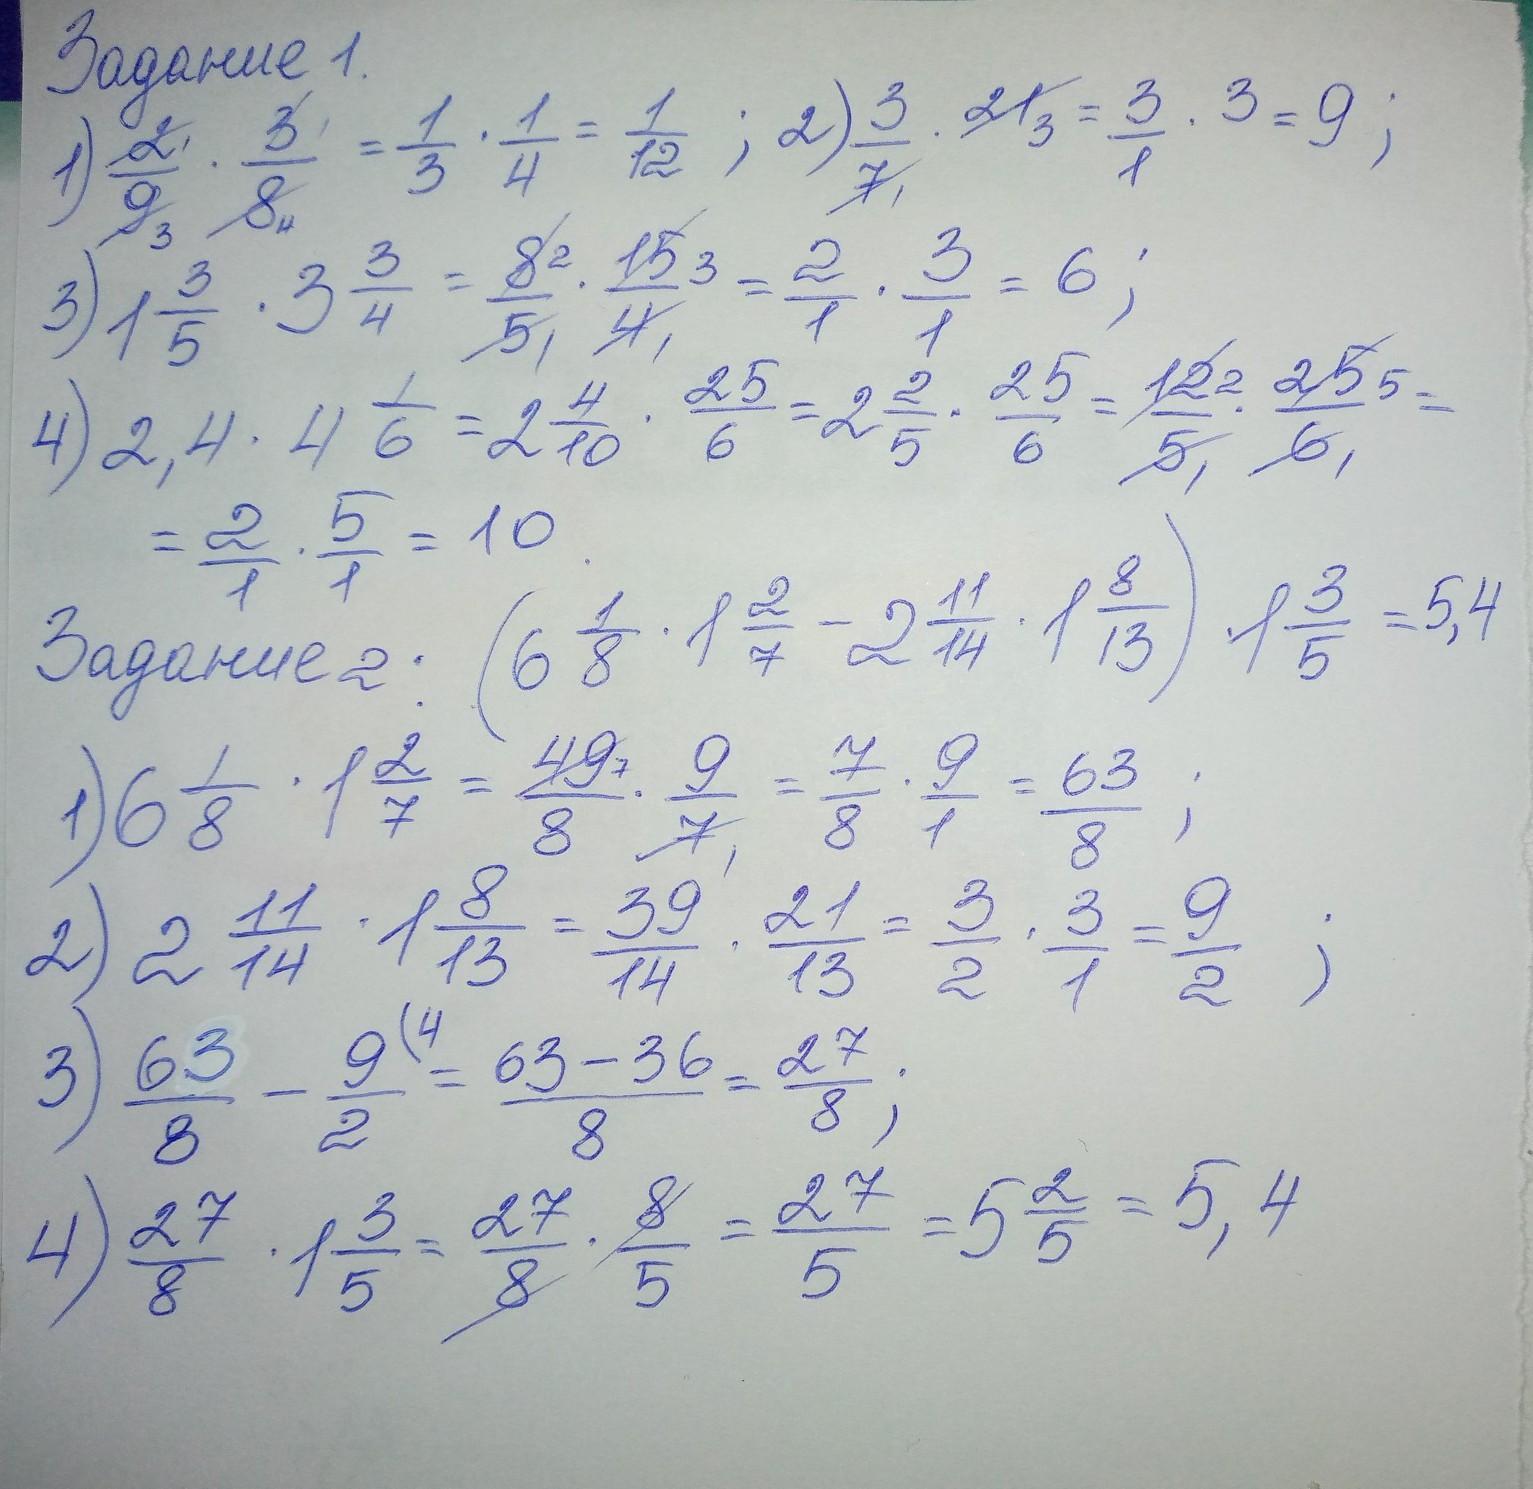 Задание 1.
1) 2/9 · 3/8 = 1/3 · 1/4 = 1/12 ; 2) 3/7 · 21 = 3/1 · 3 = 9 ;
3) 1 3/5 · 3 3/4 = 8/5 · 15/4 = 2/1 · 3/1 = 6 ;
4) 2,4 · 4 1/6 = 2 4/10 · 25/6 = 2 2/5 · 25/6 = 12/5 · 25/6 =
= 2/1 · 5/1 = 10 .
Задание 2: (6 1/8 · 1 2/7 - 2 11/14 · 1 8/13) · 1 3/5 = 5,4
1) 6 1/8 · 1 2/7 = 49/8 · 9/7 = 7/8 · 9/1 = 63/8 ;
2) 2 11/14 · 1 8/13 = 39/14 · 21/13 = 3/2 · 3/1 = 9/2 ;
3) 63/8 - 9/2 (4 = 63-36/8 = 27/8 ;
4) 27/8 · 1 3/5 = 27/8 · 8/5 = 27/5 = 5 2/5 = 5,4